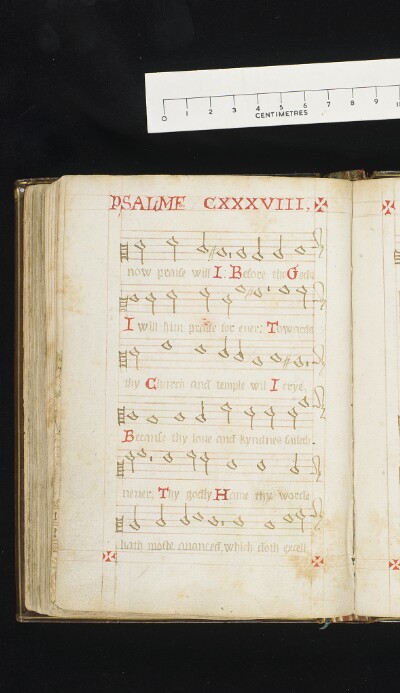 0 1 2 3 4 5 6 7 8 9
CENTIMETRES
PSALME CXXXVIII.
now praise will I: Before the Gods
I will him praise for euer: Towards
thy Church and temple wil I crye.
Because thy loue and kyndnes faileth
neuer. Thy godly Name thy words
hath moste auanced, which doth excell